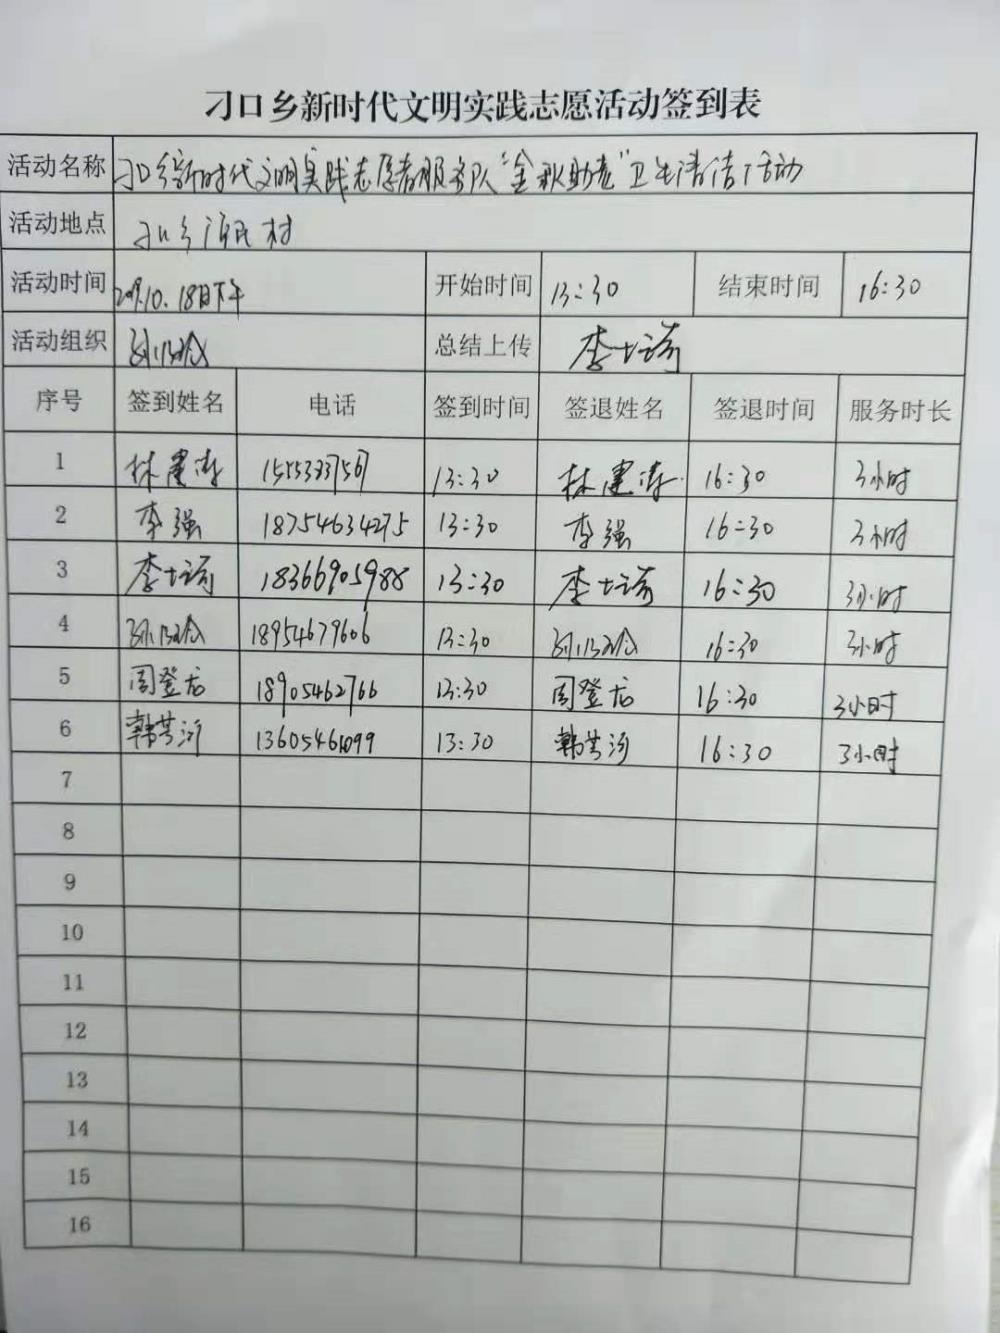 刁口乡新时代文明实践志愿活动签到表
活动名称 刁口乡新时代文明实践志愿者服务队“金秋助老”卫生清洁活动
活动地点 刁口乡渔民村
活动时间 2019.10.18日下午 开始时间 13:30 结束时间 16:30
活动组织 总结上传 李士琦
序号 签到姓名 电话 签到时间 签退姓名 签退时间 服务时长
1 林建涛 13:30 林建涛 16:30 3小时
2 李强 18754634275 13:30 李强 16:30 3小时
3 李士琦 18366905988 13:30 李士琦 16:30 3小时
4 18954679606 13:30 16:30 3小时
5 周登龙 18905462766 13:30 周登龙 16:30 3小时
6 韩芳河 13605461099 13:30 韩芳河 16:30 3小时
7
8
9
10
11
12
13
14
15
16